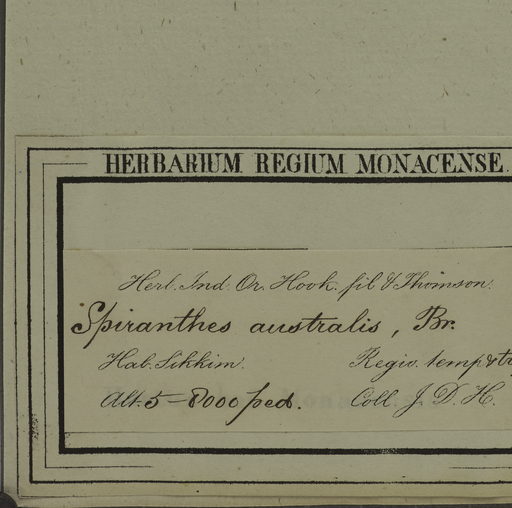 HERBARIUM REGIUM MONACENSE.
Herb. Ind. Or. Hook. fil & Thomson.
Spiranthes australis, Br.
Hab. Sikkim. Regio. temp & tr
Alt. 5-8000 ped. Coll. J. D. H.